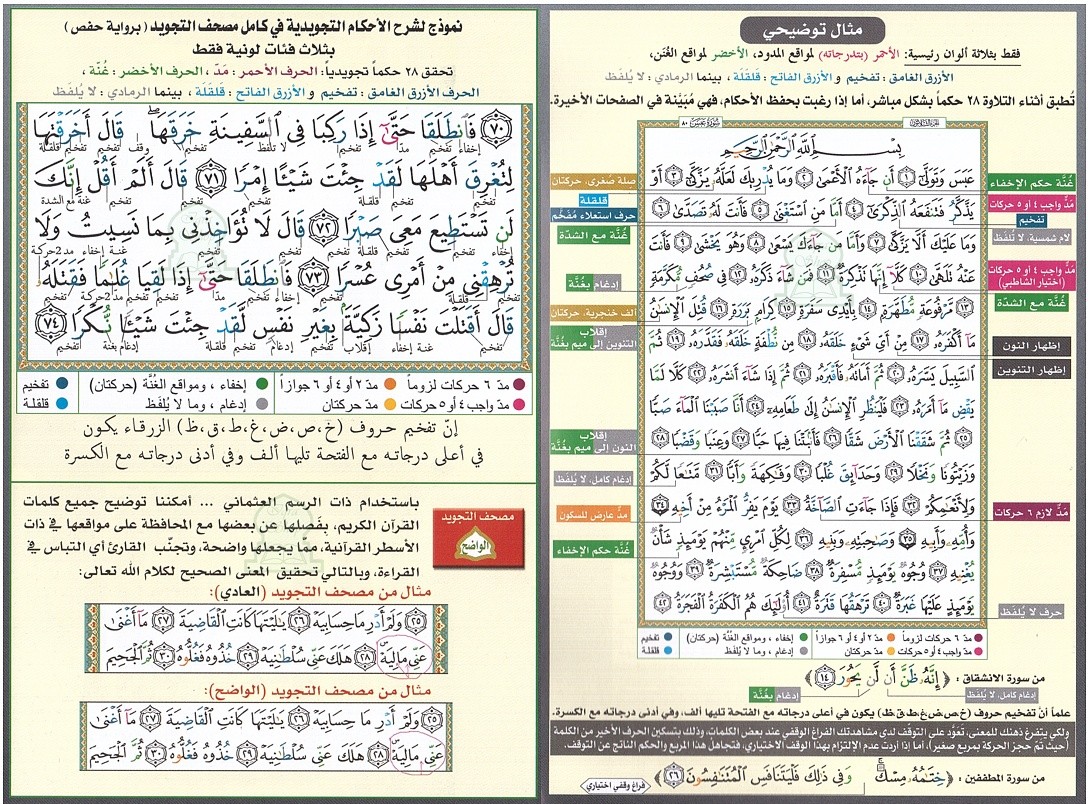 مثال توضيحي
فقط بثلاثة ألوان رئيسية: الأحمر (بتدرجاته) لمواقع المدود، الأخضر لمواقع الغُنَن،
الأزرق الغامق: تفخيم و الأزرق الفاتح: قلقلة، بينما الرمادي: لا يُلفَظ
تُطبق أثناء التلاوة ٢٨ حكماً بشكل مباشر، أما إذا رغبت بحفظ الأحكام، فهي مبيّنة في الصفحات الأخيرة.
سورة عبس ٨٠
بِسْمِ اللَّهِ الرَّحْمَٰنِ الرَّحِيمِ
عَبَسَ وَتَوَلَّىٰ ١ أَن جَاءَهُ الْأَعْمَىٰ ٢ وَمَا يُدْرِيكَ لَعَلَّهُ يَزَّكَّىٰ ٣ أَوْ
يَذَّكَّرُ فَتَنفَعَهُ الذِّكْرَىٰ ٤ أَمَّا مَنِ اسْتَغْنَىٰ ٥ فَأَنتَ لَهُ تَصَدَّىٰ ٦
وَمَا عَلَيْكَ أَلَّا يَزَّكَّىٰ ٧ وَأَمَّا مَن جَاءَكَ يَسْعَىٰ ٨ وَهُوَ يَخْشَىٰ ٩ فَأَنتَ
عَنْهُ تَلَهَّىٰ ١٠ كَلَّا إِنَّهَا تَذْكِرَةٌ ١١ فَمَن شَاءَ ذَكَرَهُ ١٢ فِي صُحُفٍ مُّكَرَّمَةٍ
١٣ مَّرْفُوعَةٍ مُّطَهَّرَةٍ ١٤ بِأَيْدِي سَفَرَةٍ ١٥ كِرَامٍ بَرَرَةٍ ١٦ قُتِلَ الْإِنسَٰنُ
مَا أَكْفَرَهُ ١٧ مِنْ أَيِّ شَيْءٍ خَلَقَهُ ١٨ مِن نُّطْفَةٍ خَلَقَهُ فَقَدَّرَهُ ١٩ ثُمَّ
السَّبِيلَ يَسَّرَهُ ٢٠ ثُمَّ أَمَاتَهُ فَأَقْبَرَهُ ٢١ ثُمَّ إِذَا شَاءَ أَنشَرَهُ ٢٢ كَلَّا لَمَّا
يَقْضِ مَا أَمَرَهُ ٢٣ فَلْيَنظُرِ الْإِنسَٰنُ إِلَىٰ طَعَامِهِ ٢٤ أَنَّا صَبَبْنَا الْمَاءَ صَبًّا
٢٥ ثُمَّ شَقَقْنَا الْأَرْضَ شَقًّا ٢٦ فَأَنبَتْنَا فِيهَا حَبًّا ٢٧ وَعِنَبًا وَقَضْبًا ٢٨
وَزَيْتُونًا وَنَخْلًا ٢٩ وَحَدَائِقَ غُلْبًا ٣٠ وَفَٰكِهَةً وَأَبًّا ٣١ مَّتَٰعًا لَّكُمْ
وَلِأَنْعَٰمِكُمْ ٣٢ فَإِذَا جَاءَتِ الصَّاخَّةُ ٣٣ يَوْمَ يَفِرُّ الْمَرْءُ مِنْ أَخِيهِ ٣٤
وَأُمِّهِ وَأَبِيهِ ٣٥ وَصَٰحِبَتِهِ وَبَنِيهِ ٣٦ لِكُلِّ امْرِئٍ مِّنْهُمْ يَوْمَئِذٍ شَأْنٌ
يُغْنِيهِ ٣٧ وُجُوهٌ يَوْمَئِذٍ مُّسْفِرَةٌ ٣٨ ضَاحِكَةٌ مُّسْتَبْشِرَةٌ ٣٩ وَوُجُوهٌ
يَوْمَئِذٍ عَلَيْهَا غَبَرَةٌ ٤٠ تَرْهَقُهَا قَتَرَةٌ ٤١ أُولَٰئِكَ هُمُ الْكَفَرَةُ الْفَجَرَةُ ٤٢
غُنَّة حكم الإخفاء
مدّ واجب ٤ أو ٥ حركات
تفخيم
لام شمسية، لا يُلفَظ
مدّ واجب ٤ أو ٥ حركات
(اختيار الشاطبي)
غُنَّة مع الشدّة
إظهار النون
إظهار التنوين
مَدّ لازم ٦ حركات
حرف لا يُلفَظ
صلة صغرى، حركتان
قلقلة
حرف استعلاء مُفَخَّم
غُنَّة مع الشدّة
إدغام بغُنَّة
ألف خنجرية، حركتان
إقلاب
التنوين إلى ميم بغُنَّة
إقلاب
النون إلى ميم بغُنَّة
إدغام كامل، لا يُلفَظ
مدّ عارض للسكون
غُنَّة حكم الإخفاء
مدّ ٦ حركات لزوماً مدّ ٢ أو ٤ أو ٦ جوازاً إخفاء، ومواقع الغُنَّة (حركتان) تفخيم
مدّ واجب ٤ أو ٥ حركات مدّ حركتان إدغام، وما لا يُلفَظ قلقلة
من سورة الانشقاق: ﴿ إِنَّهُ ظَنَّ أَن لَّن يَحُورَ ١٤ ﴾
إدغام كامل، لا يُلفَظ إدغام بغُنَّة
علماً أنّ تفخيم حروف (خ،ص،ض،غ،ط،ق،ظ) يكون في أعلى درجاته مع الفتحة تليها ألف، وفي أدنى درجاته مع الكسرة.
ولكي يتفرغ ذهنك للمعنى، تَعوَّد على التوقف لدى مشاهدتك الفراغ الوقفي عند بعض الكلمات، وذلك بتسكين الحرف الأخير من الكلمة
(حيث تمّ حجز الحركة بمربع صغير)، أما إذا أردت عدم الالتزام بهذا الوقف الاختياري، فتجاهل هذا المربع والحكم الناتج عن التوقف.
من سورة المطففين: ﴿ خِتَٰمُهُ مِسْكٌ وَفِي ذَٰلِكَ فَلْيَتَنَافَسِ الْمُتَنَٰفِسُونَ ٢٦ ﴾
فراغ وقفي اختياري
نموذج لشرح الأحكام التجويدية في كامل مصحف التجويد (برواية حفص)
بثلاث فئات لونية فقط
تحقق ٢٨ حكماً تجويدياً: الحرف الأحمر: مَدّ، الحرف الأخضر: غُنَّة،
الحرف الأزرق الغامق: تفخيم و الأزرق الفاتح: قلقلة، بينما الرمادي: لا يُلفَظ
٧٠ فَانطَلَقَا حَتَّىٰ إِذَا رَكِبَا فِي السَّفِينَةِ خَرَقَهَا قَالَ أَخَرَقْتَهَا
لِتُغْرِقَ أَهْلَهَا لَقَدْ جِئْتَ شَيْئًا إِمْرًا ٧١ قَالَ أَلَمْ أَقُلْ إِنَّكَ
لَن تَسْتَطِيعَ مَعِيَ صَبْرًا ٧٢ قَالَ لَا تُؤَاخِذْنِي بِمَا نَسِيتُ وَلَا
تُرْهِقْنِي مِنْ أَمْرِي عُسْرًا ٧٣ فَانطَلَقَا حَتَّىٰ إِذَا لَقِيَا غُلَٰمًا فَقَتَلَهُ
قَالَ أَقَتَلْتَ نَفْسًا زَكِيَّةً بِغَيْرِ نَفْسٍ لَّقَدْ جِئْتَ شَيْئًا نُّكْرًا ٧٤
مدّ ٦ حركات لزوماً مدّ ٢ أو ٤ أو ٦ جوازاً إخفاء، ومواقع الغُنَّة (حركتان) تفخيم
مدّ واجب ٤ أو ٥ حركات مدّ حركتان إدغام، وما لا يُلفَظ قلقلة
إنّ تفخيم حروف (خ،ص،ض،غ،ط،ق،ظ) الزرقاء يكون
في أعلى درجاته مع الفتحة تليها ألف وفي أدنى درجاته مع الكسرة
مصحف التجويد
الواضح
باستخدام ذات الرسم العثماني ... أمكننا توضيح جميع كلمات
القرآن الكريم، بفَصلِها عن بعضها مع المحافظة على مواقعها في ذات
الأسطر القرآنية، ممّا يجعلها واضحة، وتجنّب القارئ أي التباس في
القراءة، وبالتالي تحقيق المعنى الصحيح لكلام الله تعالى:
مثال من مصحف التجويد (العادي):
٢٥ وَلَمْ أَدْرِ مَا حِسَابِيَهْ ٢٦ يَٰلَيْتَهَا كَانَتِ الْقَاضِيَةَ ٢٧ مَا أَغْنَىٰ
عَنِّي مَالِيَهْ ٢٨ هَلَكَ عَنِّي سُلْطَٰنِيَهْ ٢٩ خُذُوهُ فَغُلُّوهُ ٣٠ ثُمَّ الْجَحِيمَ
مثال من مصحف التجويد (الواضح):
٢٥ وَلَمْ أَدْرِ مَا حِسَابِيَهْ ٢٦ يَٰلَيْتَهَا كَانَتِ الْقَاضِيَةَ ٢٧ مَا أَغْنَىٰ
عَنِّي مَالِيَهْ ٢٨ هَلَكَ عَنِّي سُلْطَٰنِيَهْ ٢٩ خُذُوهُ فَغُلُّوهُ ٣٠ ثُمَّ الْجَحِيمَ